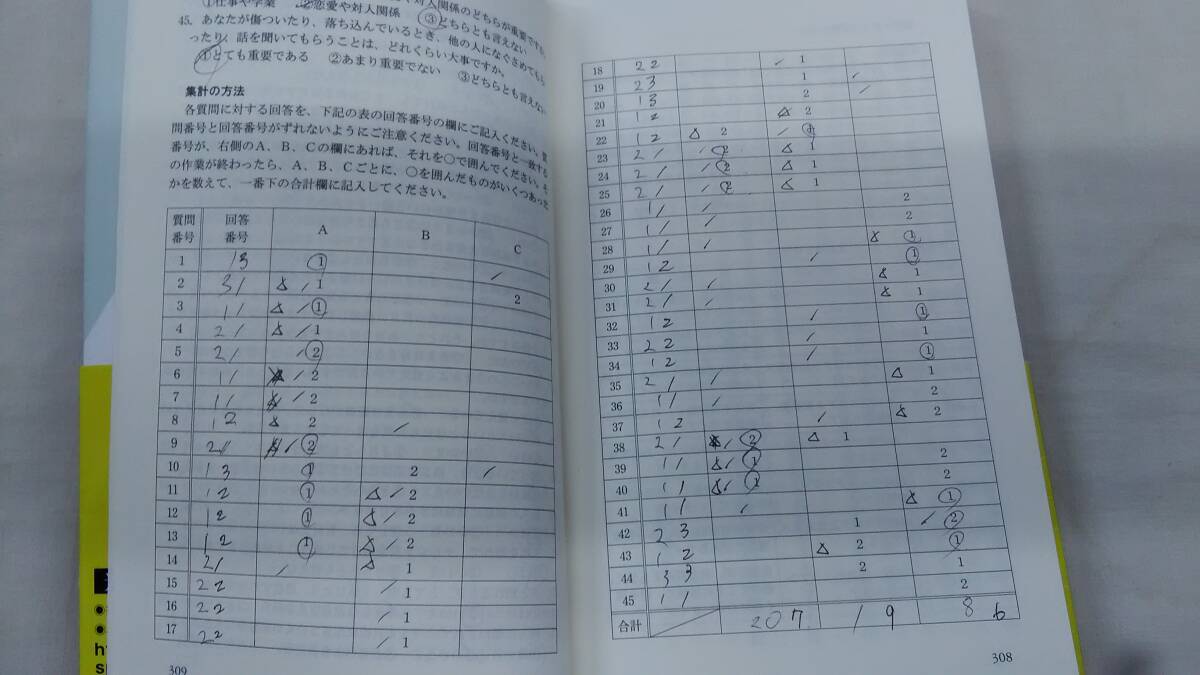 ①仕事や学業 ②恋愛や対人関係 ③どちらとも言えない
45. あなたが傷ついたり、落ち込んでいるとき、他の人になぐさめてもら
ったり、話を聞いてもらうことは、どれくらい大事ですか。
①とても重要である ②あまり重要でない ③どちらとも言えない
集計の方法
各質問に対する回答を、下記の表の回答番号の欄にご記入ください。質
問番号と回答番号がずれないようにご注意ください。回答番号と一致する
番号が、右側のA、B、Cの欄にあれば、それを○で囲んでください。そ
の作業が終わったら、A、B、Cごとに、○を囲んだものがいくつあった
かを数えて、一番下の合計欄に記入してください。
質問番号 回答番号 A B C
1 13 ①
2 31 1 2
3 11 ①
4 21 1
5 21 ②
6 11 2
7 11 2
8 12 2
9 21 ②
10 13 ① 2
11 12 ① 2
12 12 ① 2
13 12 ① 2
14 21 1
15 22 1
16 22 1
17 22 1
309
18 22 1
19 23 1
20 13 2
21 12 2
22 12 2 ①
23 21 ② 1
24 21 ② 1
25 21 ② 1
26 11 2
27 11 2
28 11 ①
29 12 ①
30 21 1
31 21 1
32 12 ①
33 22 1
34 12 ①
35 21 1
36 11 2
37 12 2
38 21 ② 1
39 11 ① 2
40 11 ① 2
41 11 ①
42 23 1 ②
43 12 2 ①
44 33 2 1
45 11 2
合計 207 19 86
308